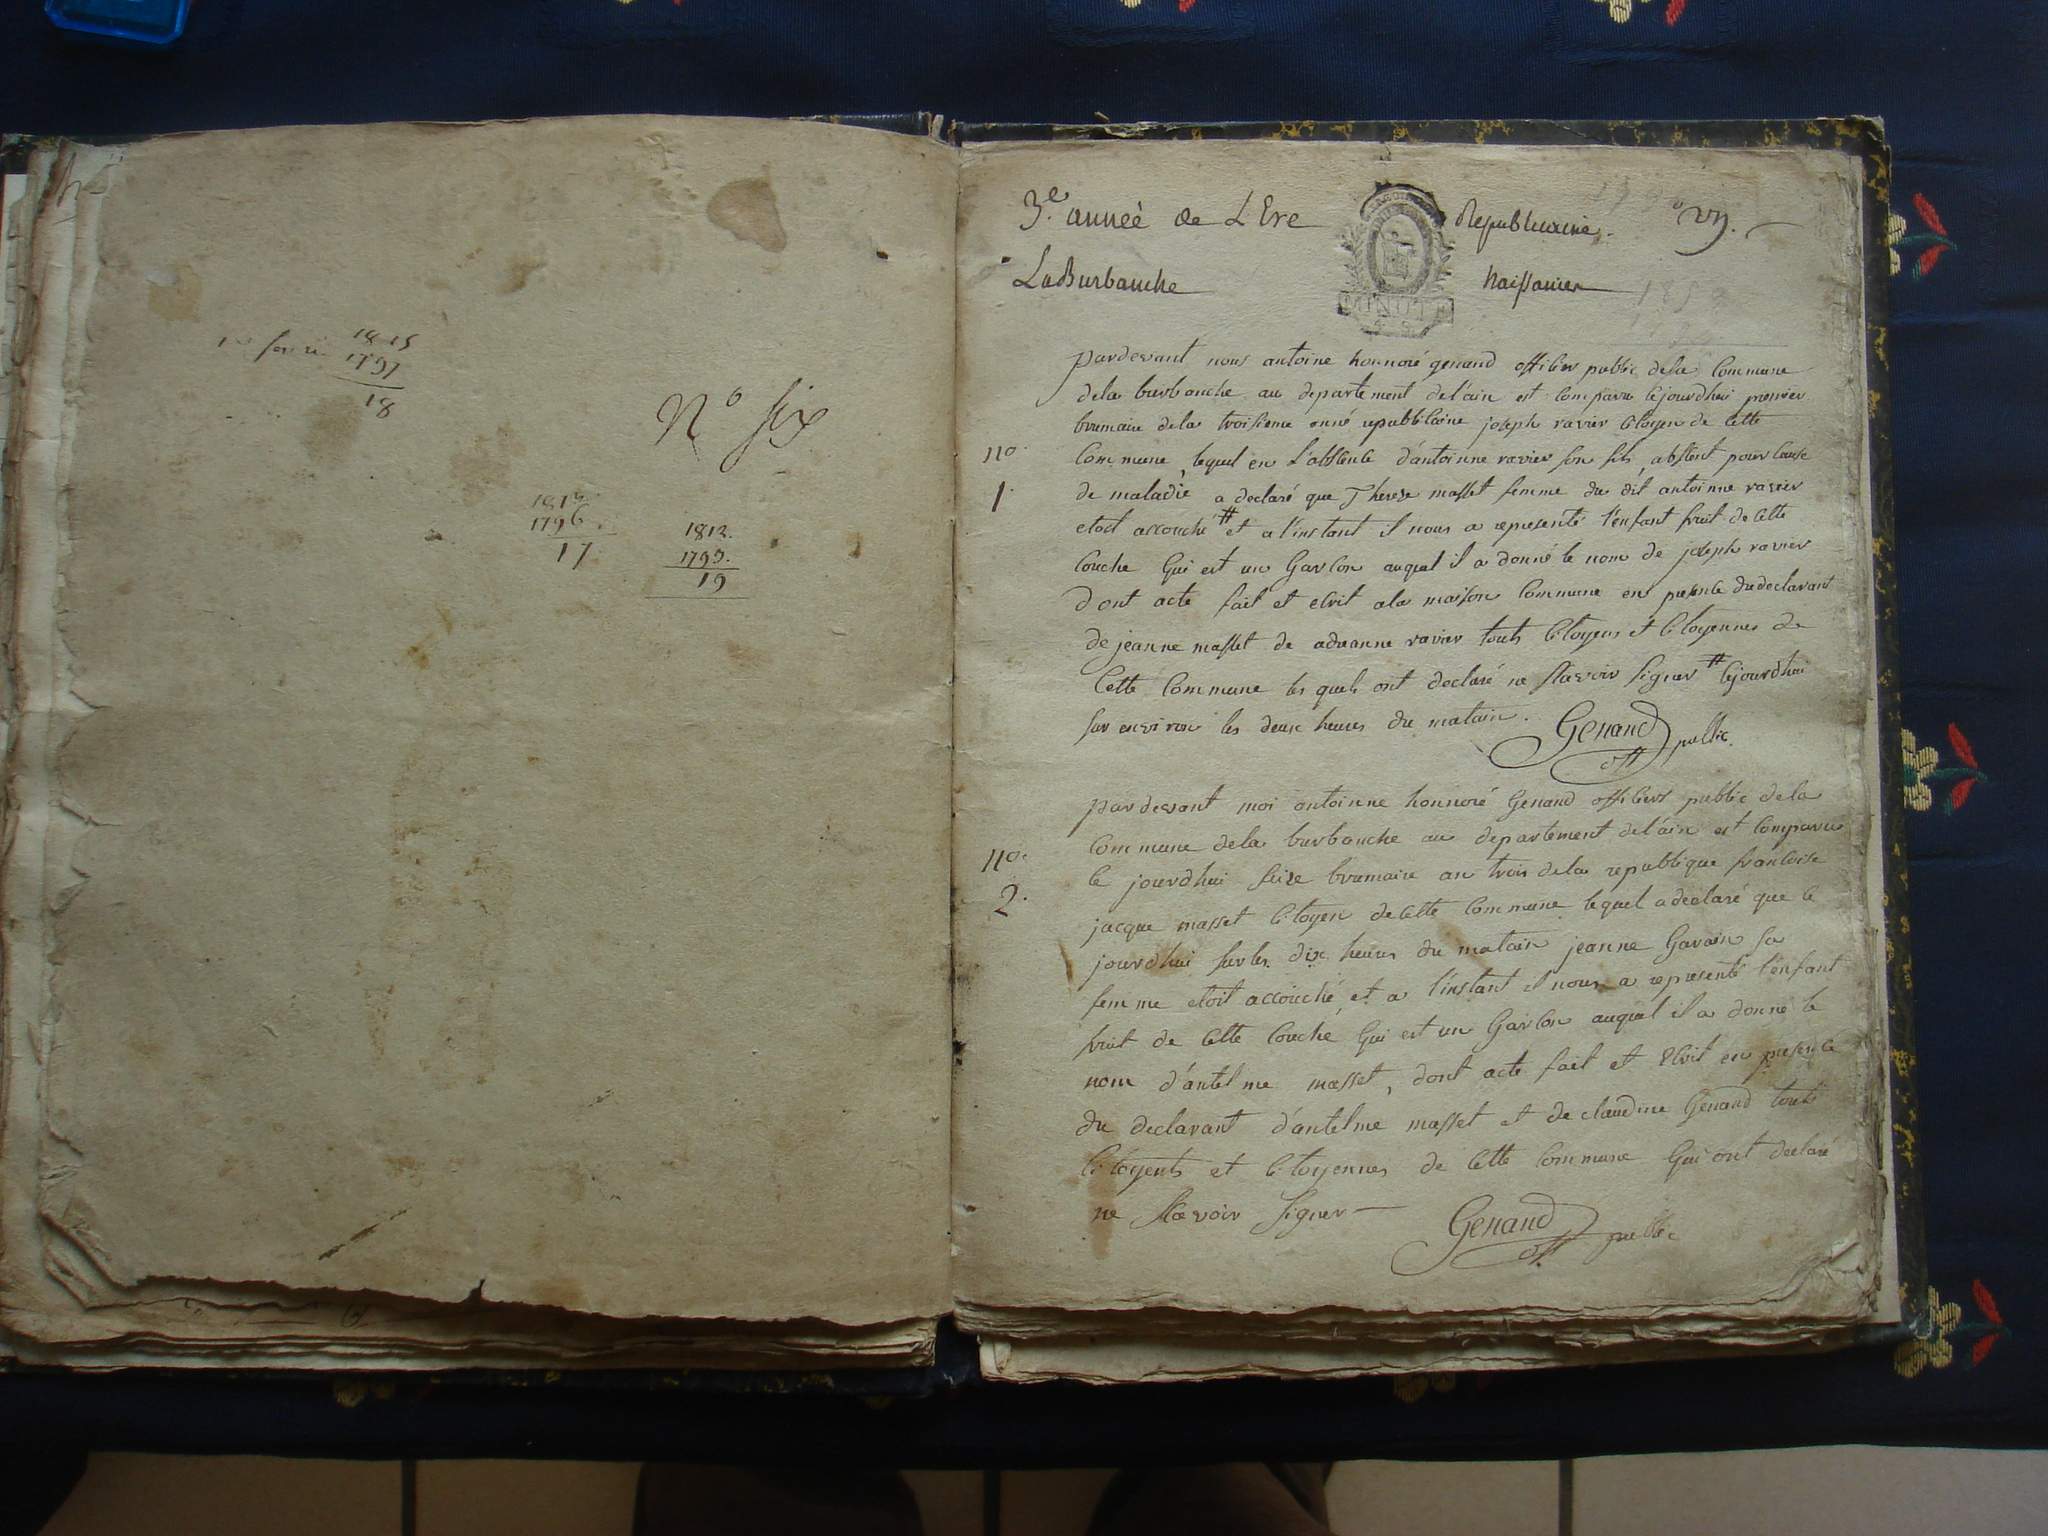 1815
1797
18
No six
1813
1796.
17.
1812.
1793.
19
3e. année de L Ere Republicaine.
La Burbanche Naissances
MINUTE
pardevant nous antoine honnoré genand officier public dela Commune
dela burbanche au departement delain est comparu cejourdhui premier
brumaire dela troisieme anné republicaine joseph ravier citoyen de cette
no. Commune, lequel en L'abscence d'antoinne ravier son fils, absent pour cause
1. de maladie a declaré que Therese masset femme du dit antoinne ravier
etoit accouché # et a l'instant il nous a representé l'enfant fruit de cette
couche qui est un Garcon auquel il a donné le nom de joseph ravier
Dont acte fait et ecrit ala maison commune en presence du declarant
de jeanne masset de adrianne ravier touts citoyens et citoyennes de
Cette Commune les quels ont declaré ne scavoir signer # cejourdhui
sur environ les deux heures du matain.
Genand
off public.
pardevant moi antoinne honnoré Genand officiers public dela
Commune dela burbanche au departement delain est comparu
no. ce jourdhui seize brumaire an trois dela republique francoise
2. jacque masset citoyen decette commune lequel a declaré que ce
jourdhui sur les dix heures du matain jeanne Gavain sa
femme etoit accouché, et a l'instant il nous a representé l'enfant
fruit de cette couche qui est un Garcon auquel il a donné le
nom d'antelme masset, dont acte fait et ecrit en presence
du declarant d'antelme masset et de claudine Genand touts
citoyents et citoyennes de cette commune qui ont declaré
ne scavoir signer
Genand
off public